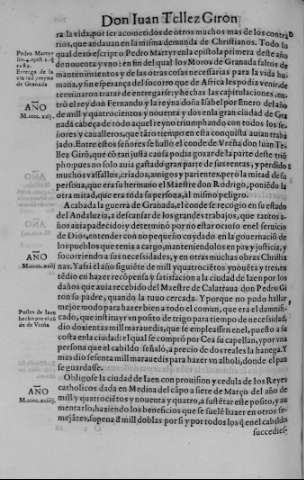 Don Iuan Tellez Girón
ra la vida, por ser aconocidos de otros muchos mas de los contra
rios, que andauan en la misma demanda de Christianos. Todo lo
Pedro Martyr
qual dexo escripto Pedro Martyr en la epistola primera de este año
de nouenta y vno: en fin del qual los Moros de Granada faltos de
Entrega de la
mantenimientos y de las otras cosas necessarias para la vida hu-
de Granada
mana, y sin esperança del socorro que de Africa les podia venir de
terminaron tratar de entregarse: y hechas las capitulaciones, en-
AÑO
tró el rey don Fernando y la reyna doña Isabel por Enero del año
M.cccc.xcij.
de mil y quatrocientos y nouenta y dos en la gran ciudad de Gra
nada cabeça de todo aquel reyno entrando con ellos todos los se-
ñores y caualleros, que tãto tiempo en esta conquista auian traba
jado. Entre estos señores se hallo el conde de Vreña don Iuan Te-
llez Girõ, que cõ tan justa causa podia gozar de la parte deste triũ
pho; pues no solo auia gastado gran parte de sus rentas, y perdido
muchos vassallos, criados, amigos y parientes, pero la mitad de su
persona, que era su hermano el Maestre don Rodrigo, poniẽdo la
otra mitad, que era toda su persona, al mismo peligro.
Acabada la guerra de Granada, el conde se recogio en su estado
del Andaluzia, a descansar de los grandes trabajos, que tantos a-
ños auia padecido: y determinó por no estar ocioso en el seruicio
de Dios, entender con no pequeño cuydado en la gouernaciõ de
los pueblos que tenia a cargo, manteniendolos en paz y justicia, y
AÑO
socorriendo a sus necessidades, y en otras muchas obras Christia
nas. Y assi el año siguiẽte de mil y quatrociẽtos y nouẽta y tres en-
tẽdio en hazer recõpensa y satisfacion a la ciudad de Iaen por los
daños que auia recebido del Maestre de Calatraua don Pedro Gi
ron su padre, quando la tuuo cercada. Y porque no pudo hallar
Posito de Iaen
mejor modo para hazer bien a todo el comun, que era el damnifi-
cado, que instituyr vn posito de trigo para tiempo de necessidad,
de Vreña
dio dozientas mill marauedis, que se empleassen en el, puesto a su
costa en la ciudad: el qual se compró por Cea su capellan, y por vna
persona que el cabildo señaló, a precio de dos reales la hanega. Y
mas dio sesenta mill marauedis para hazer vn alholi, donde el pan
se guardasse.
Obligose la ciudad de Iaen con prouision y cedula de los Reyes
AÑO
catholicos dada en Medina del cãpo a siete de Março del año de
M.cccc.xciiij.
mill y quatrociẽtos y nouenta y quatro, a sustẽtar este posito, y au
mentarlo, haziendo los beneficios que se suelẽ hazer en otros se-
mejãtes, so pena d mill doblas por si y por todos los q̃ en el cabildo
succedies-